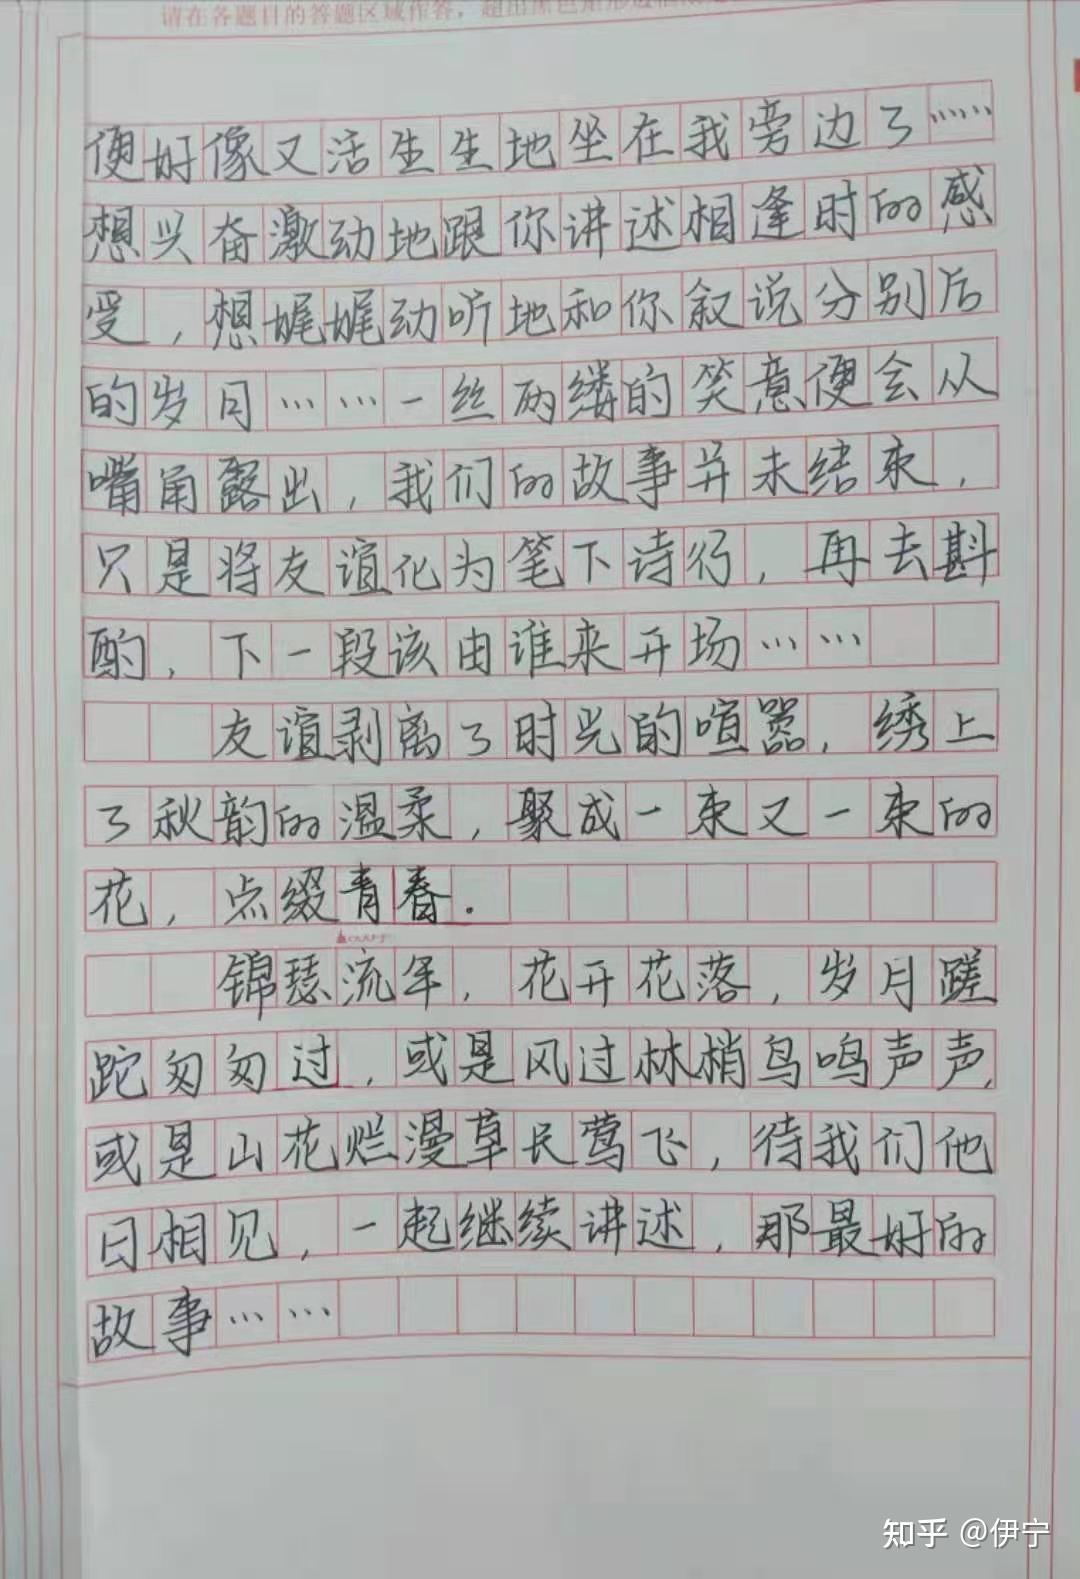 请在各题目的答题区域作答，超出黑色矩形边框
便好像又活生生地坐在我旁边了……
想兴奋激动地跟你讲述相逢时的感
受，想娓娓动听地和你叙说分别后
的岁月……一丝两缕的笑意便会从
嘴角露出，我们的故事并未结束，
只是将友谊化为笔下诗行，再去斟
酌，下一段该由谁来开场……
友谊剥离了时光的喧嚣，绣上
了秋韵的温柔，聚成一束又一束的
花，点缀青春.
锦瑟流年，花开花落，岁月蹉
跎匆匆过，或是风过林梢鸟鸣声声，
或是山花烂漫草长莺飞，待我们他
日相见，一起继续讲述，那最好的
故事……
知乎 @伊宁